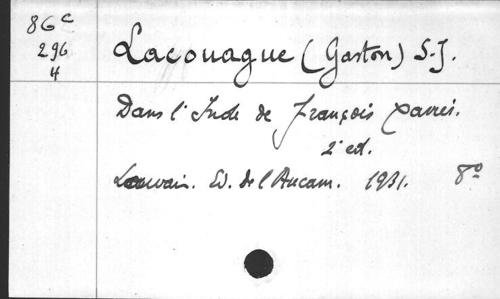 86 c
296
4
Lacouague (Gaston) S.J.
Dans l'Inde de François Xavier.
2e ed.
Louvain. Ed. de l'Aucam. 1931. 8º